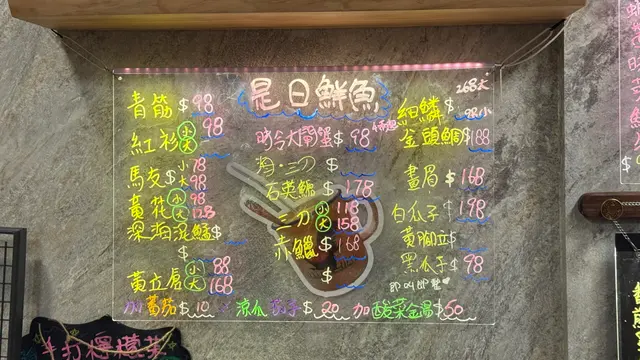 是日鮮魚
青筋 $ 98
紅衫 小 大 98
馬友 $ 小78 大98
黃花 小 98 大 128
深海混鱲 $
$
黃立倉 小 88 大 168
時令大閘蟹 $ 98
$
石英鯆 $ 178
三刀 小 118 大 158
赤鱲 $ 168
$
細鱗 $ 268大 98小
金頭鯛 $ 188
畫眉 $ 168
白瓜子 $ 198
黃腳立 $
黑瓜子 $ 98
即叫即整
加 蕃茄 $ 10 涼瓜 $ 20 加 酸菜金湯 $ 60
手打檸檬茶